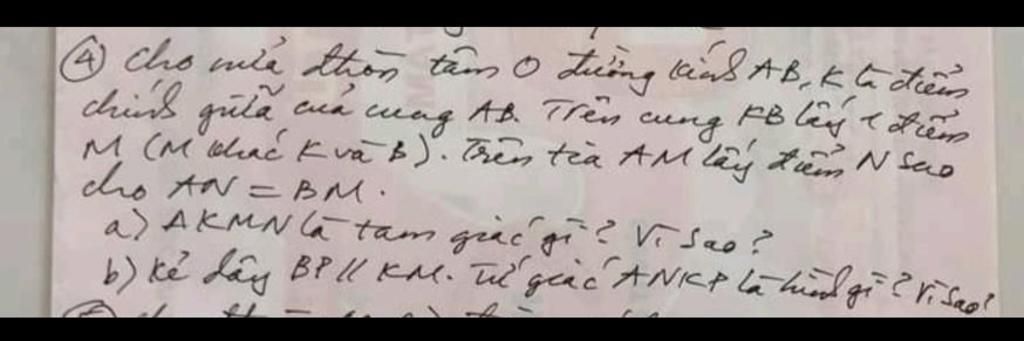 ④ Cho nửa đtròn tâm O đường kính AB, K là điểm
chính giữa của cung AB. Trên cung KB lấy 1 điểm
M (M khác K và B). Trên tia AM lấy điểm N sao
cho AN = BM.
a) ΔKMN là tam giác gì? Vì sao?
b) Kẻ dây BP // KM. Tứ giác ANKP là hình gì? Vì sao?